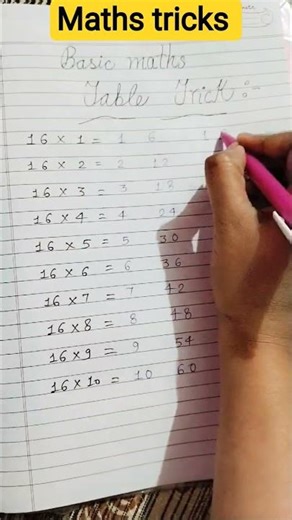 Maths tricks
Basic maths
Table Trick:-
16 × 1 = 1 6 1
16 × 2 = 2 12
16 × 3 = 3 18
16 × 4 = 4 24
16 × 5 = 5 30
16 × 6 = 6 36
16 × 7 = 7 42
16 × 8 = 8 48
16 × 9 = 9 54
16 × 10 = 10 60